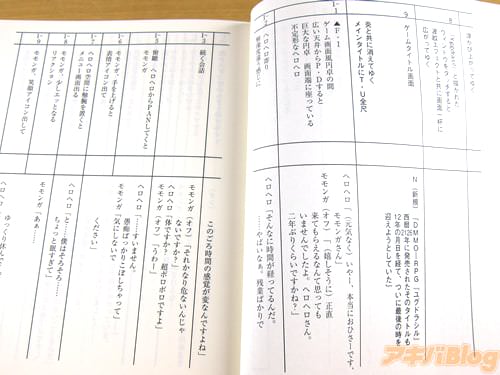 8
浮かび上がってゆく
「Yggdrasil」と描かれた
ウィンドウをタッチすると
波紋エフェクトと共に画面一杯に
広がってゆく
9
ゲームタイトル画面
炎と共に消えてゆく
メインタイトルにT・U全尺
N(新規)「DMMO-RPG『ユグドラシル』
西暦2126年に発売されたそのタイトルも
12年の月日を経て、ついに最後の時を
迎えようとしていた」
▲F・I
1-1
ゲーム画面風円卓の間
広い天井からP・Dすると
巨大な円卓 画面端に座っている
不定形なヘロヘロ
ヘロヘロ「(元気なく)いやー、本当におひさーです、
モモンガさん」
モモンガ(オフ)「(嬉しそうに)正直
来てもらえるなんて思っても
いませんでしたよ。ヘロヘロさん。
二年ぶりくらいですかね?」
1-2
ヘロヘロ寄り
ヘロヘロ「そんなに時間が経ってるんだ。
……やばいなぁ。残業ばかりで
1-3
続く会話
このごろ時間の感覚が変なんですよね」
モモンガ(オフ)「それかなり危ないんじゃ
ないですか?」
ヘロヘロ「体ですか? 超ボロボロですよ」
モモンガ(オフ)「うわー」
1-5
俯瞰 ヘロヘロからPANしてくと
モモンガ
ヘロヘロ「……すいません。
愚痴ばっかりこぼしちゃって」
1-6
モモンガ、手を上げると
表情アイコン出て
モモンガ「気にしないで
ください」
1-7
ヘロヘロ空間に触腕を置くと
メニュー画面出る
ヘロヘロ「と……僕はそろそろ……
ちょっと眠すぎて」
1-8
モモンガ、少しムッとなる
リアクション
モモンガ「あぁ……
1-9
モモンガ、笑顔アイコン出して
ヘロヘロ
ゆっくり休んで
アキバBlog